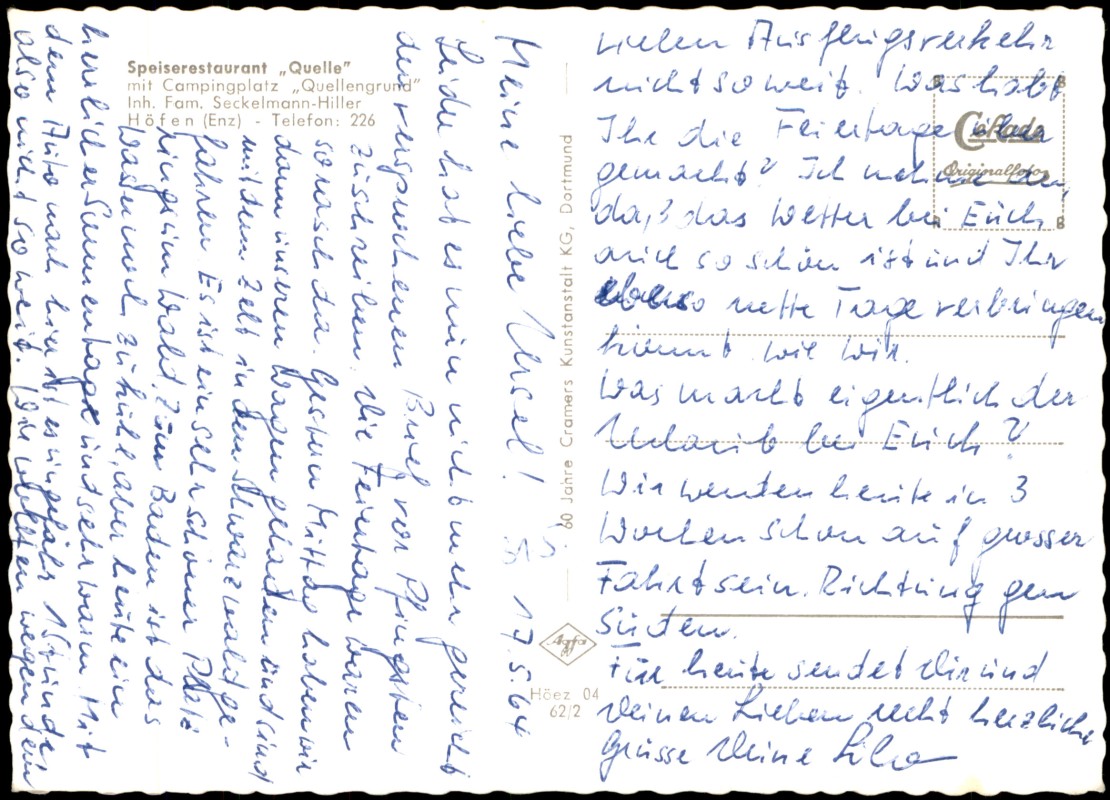 Speiserestaurant „Quelle"
mit Campingplatz „Quellengrund"
Inh. Fam. Seckelmann-Hiller
Höfen (Enz) - Telefon: 226
60 Jahre Cramers Kunstanstalt KG, Dortmund
Agfa
Höez 04
62/2
Cekade
Originalfoto
17.5.64
Meine liebe Ursel!
Leider hat es mir nicht mehr gereicht
den versprochenen Brief vor Pfingsten
zu schreiben. Die Feiertage waren
so rasch da. Gestern Mittag haben wir
dann unseren Wagen geladen und sind
mit dem Zelt in den Schwarzwald ge-
fahren. Es ist ein sehr schöner Platz
rings um Wald. Zum Baden ist das
Wasser noch zu kühl, aber heute ein
herrlicher Sonnentag und sehr warm. Mit
dem Auto nach hier ist es ungefähr 1 Stunde
also nicht so weit. Wir wollten wegen dem
vielen Ausflugsverkehr
nicht so weit. Was habt
Ihr die Feiertage
gemacht? Ich nehme an,
daß das Wetter bei Euch
auch so schön ist und Ihr
ebenso nette Tage verbringen
könnt wie wir.
Was macht eigentlich der
Urlaub bei Euch?
Wir werden heute in 3
Wochen schon auf grosser
Fahrt sein. Richtung gen
Süden.
Für heute sendet Dir und
Deinen Lieben recht herzliche
Grüsse Deine